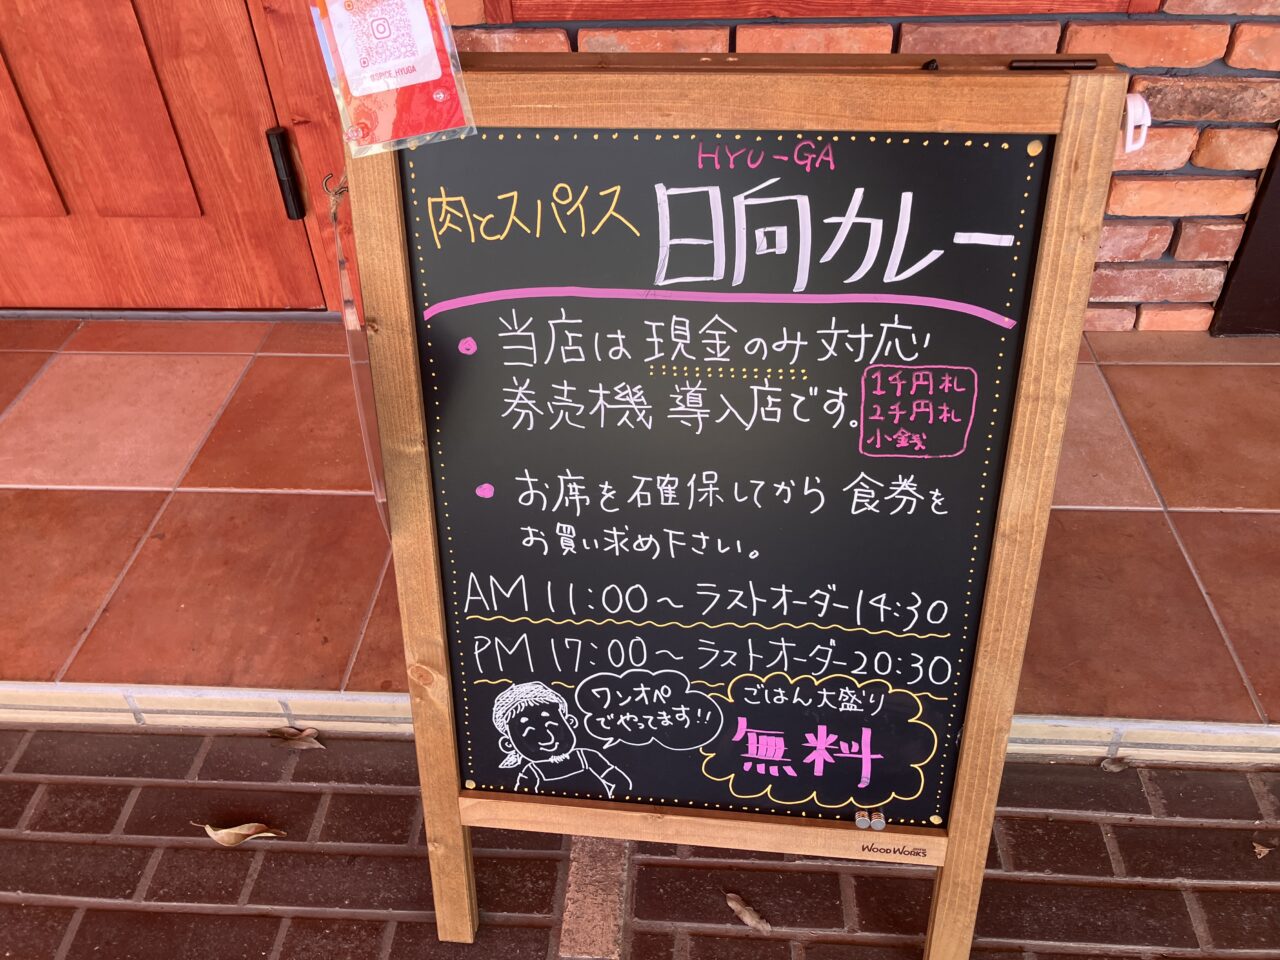 @SPICE_HYUGA
HYU-GA
肉とスパイス 日向カレー
当店は現金のみ対応
券売機 導入店です。
1千円札
2千円札
小銭
お席を確保してから 食券を
お買い求め下さい。
AM 11:00〜ラストオーダー14:30
PM 17:00〜ラストオーダー20:30
ワンオペ
でやってます!!
ごはん大盛り
無料
WOOD WORKS